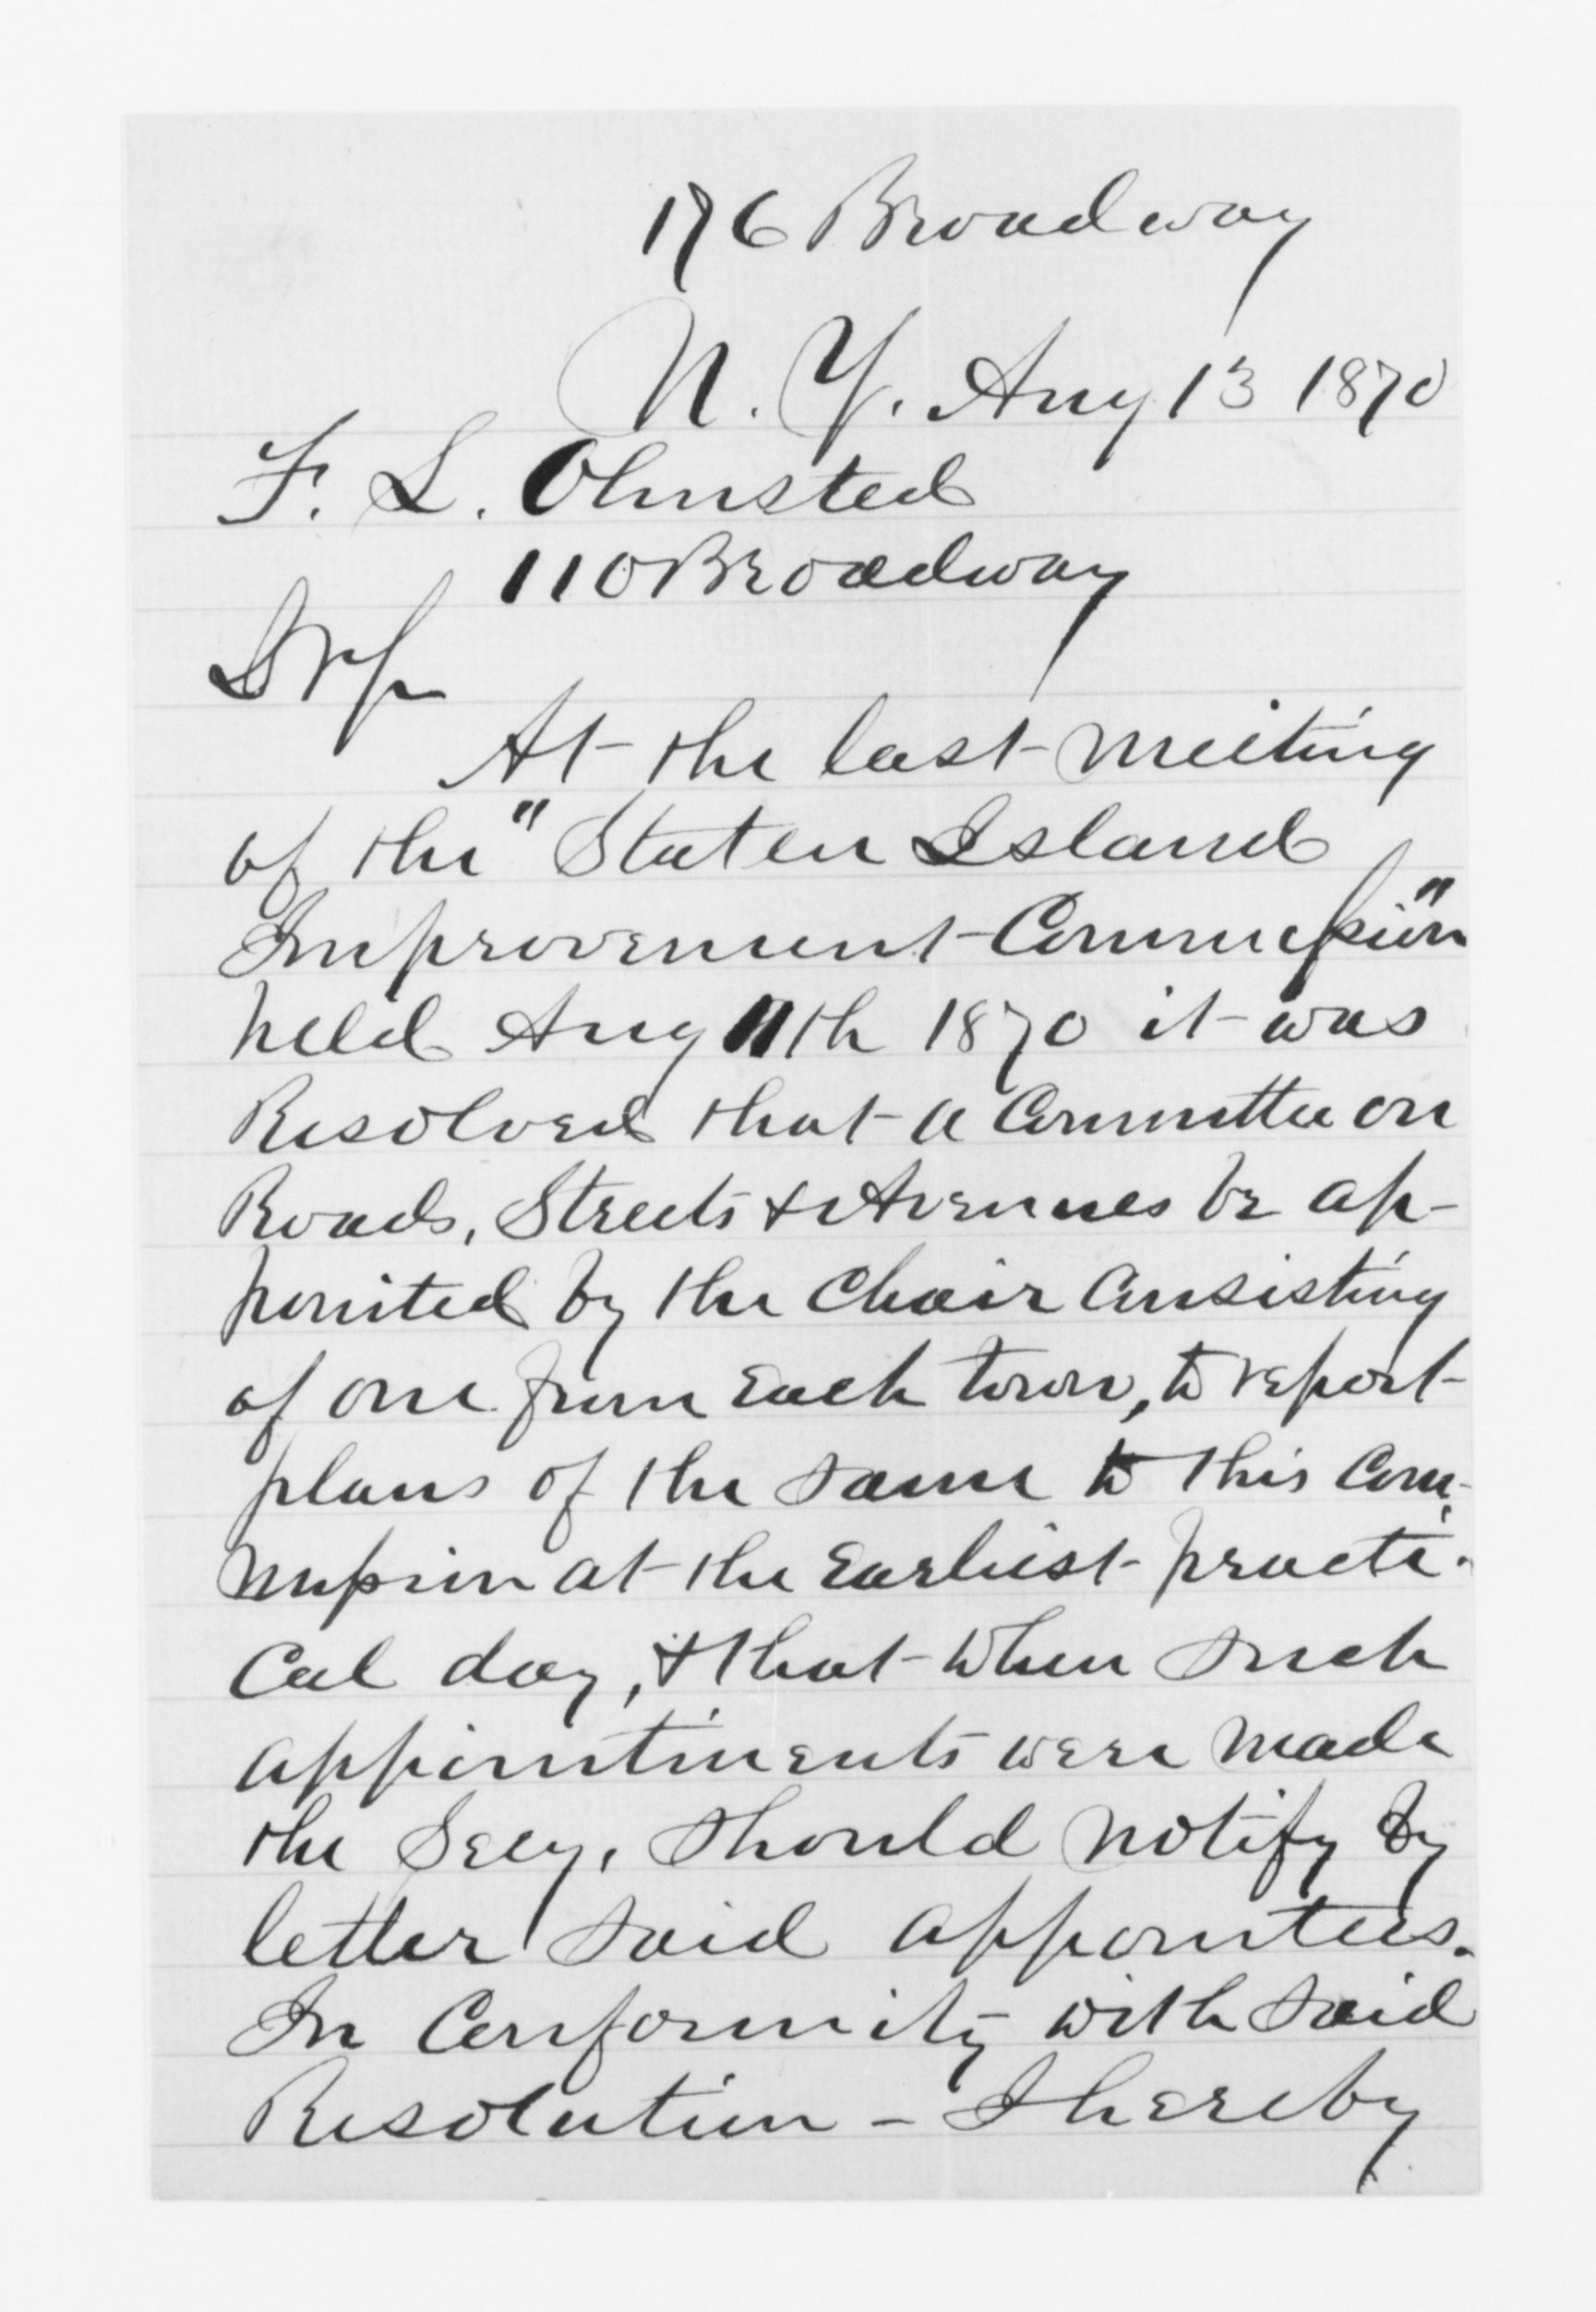 176 Broadway
N. Y. Aug 13 1870
F. L. Olmsted
110 Broadway
At the last meeting
of the "Staten Island
Improvement Commission"
held Aug 11th 1870 it was
Resolved that a Committee on
Roads, Streets & Avenues be ap-
pointed by the Chair Consisting
of one from Each town, to report
plans of the same to this Com-
mission at the Earliest practi-
Cal day, & that when such
appointments were made
the Secy, should notify by
letter said appointees.
In Conformity with said
Resolution - I hereby